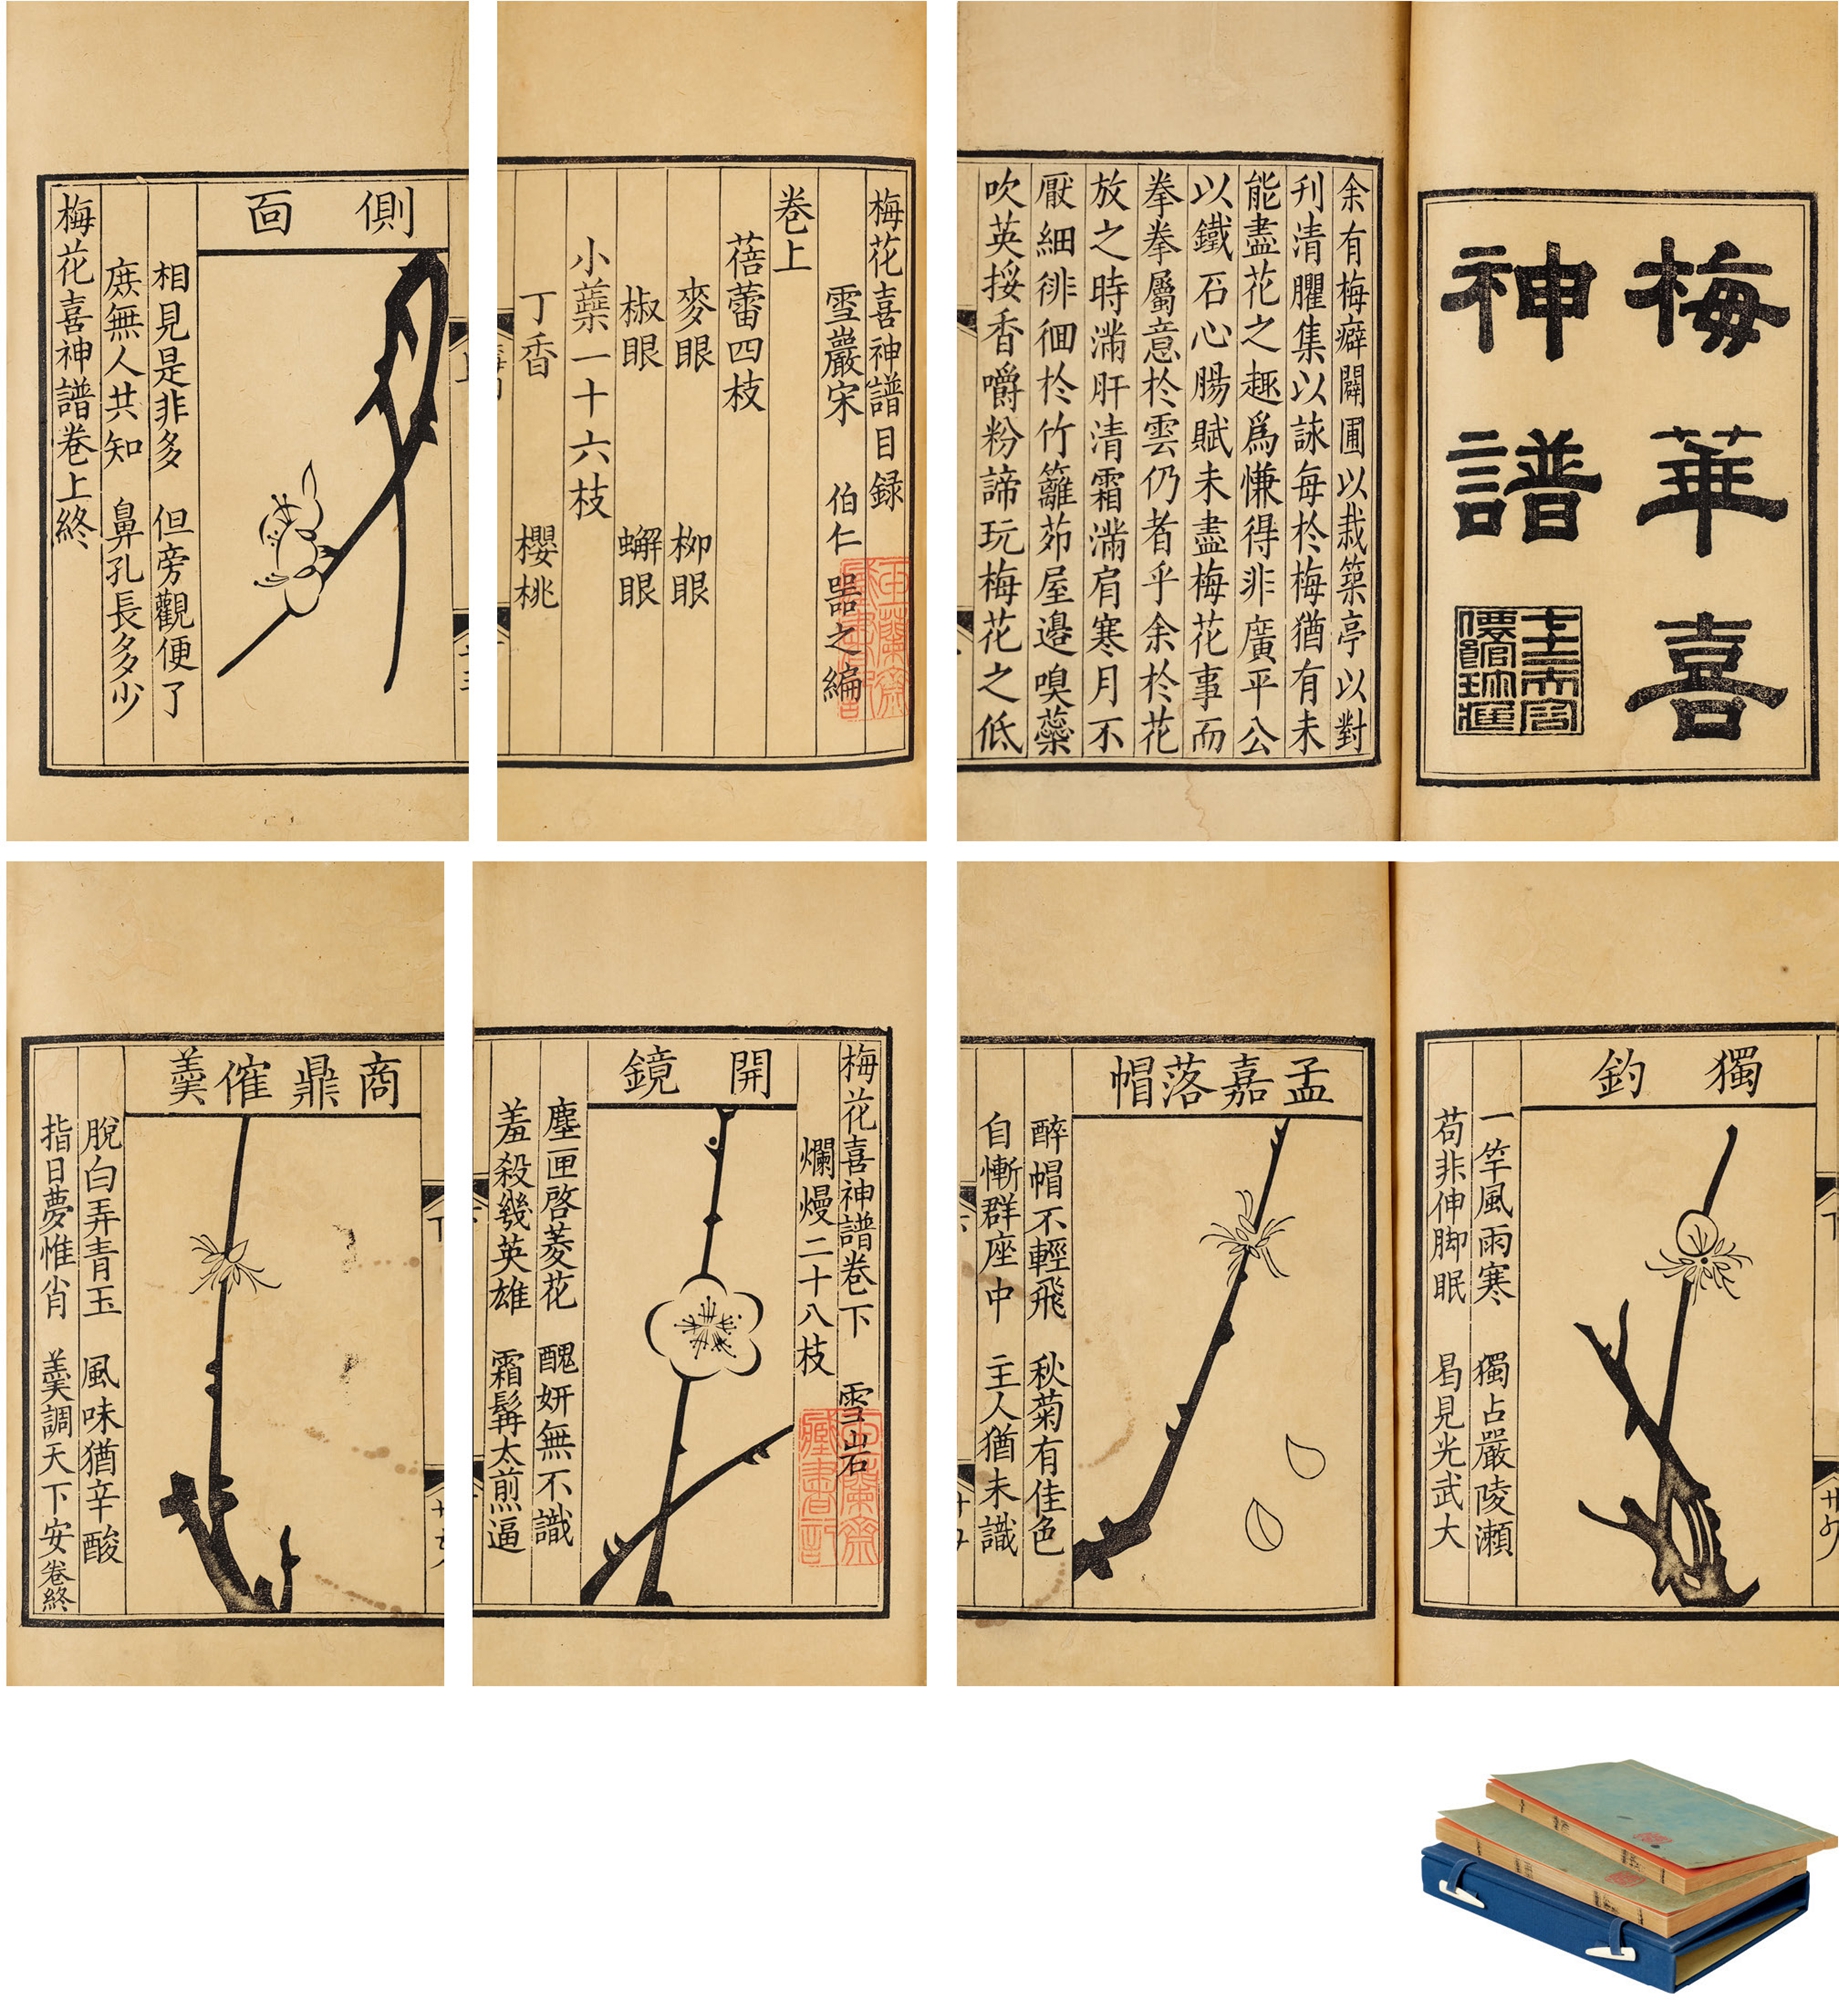 梅華喜
神譜
余有梅癖闢圃以栽築亭以對
刋清臞集以詠每於梅猶有未
能盡花之趣爲慊得非廣平公
以鐵石心腸賦未盡梅花事而
拳拳屬意於雲仍者乎余於花
放之時滿肝清霜滿肩寒月不
厭細徘徊於竹籬茆屋邊嗅蘂
吹英挼香嚼粉諦玩梅花之低
梅花喜神譜目録
雪巖宋 伯仁 器之編
卷上
蓓蕾四枝
麥眼 柳眼
椒眼 蠏眼
小蘂一十六枝
丁香 櫻桃
側面
相見是非多 但旁觀便了
庶無人共知 鼻孔長多少
梅花喜神譜卷上終
獨釣
一竿風雨寒 獨占嚴陵瀨
苟非伸脚眠 曷見光武大
孟嘉落帽
醉帽不輕飛 秋菊有佳色
自慚群座中 主人猶未識
梅花喜神譜卷下 雪岩
爛熳二十八枝
開鏡
塵匣啓菱花 醜妍無不識
羞殺幾英雄 霜髯太煎逼
商鼎催羹
脫白弄青玉 風味猶辛酸
指日夢惟肖 羹調天下安卷終